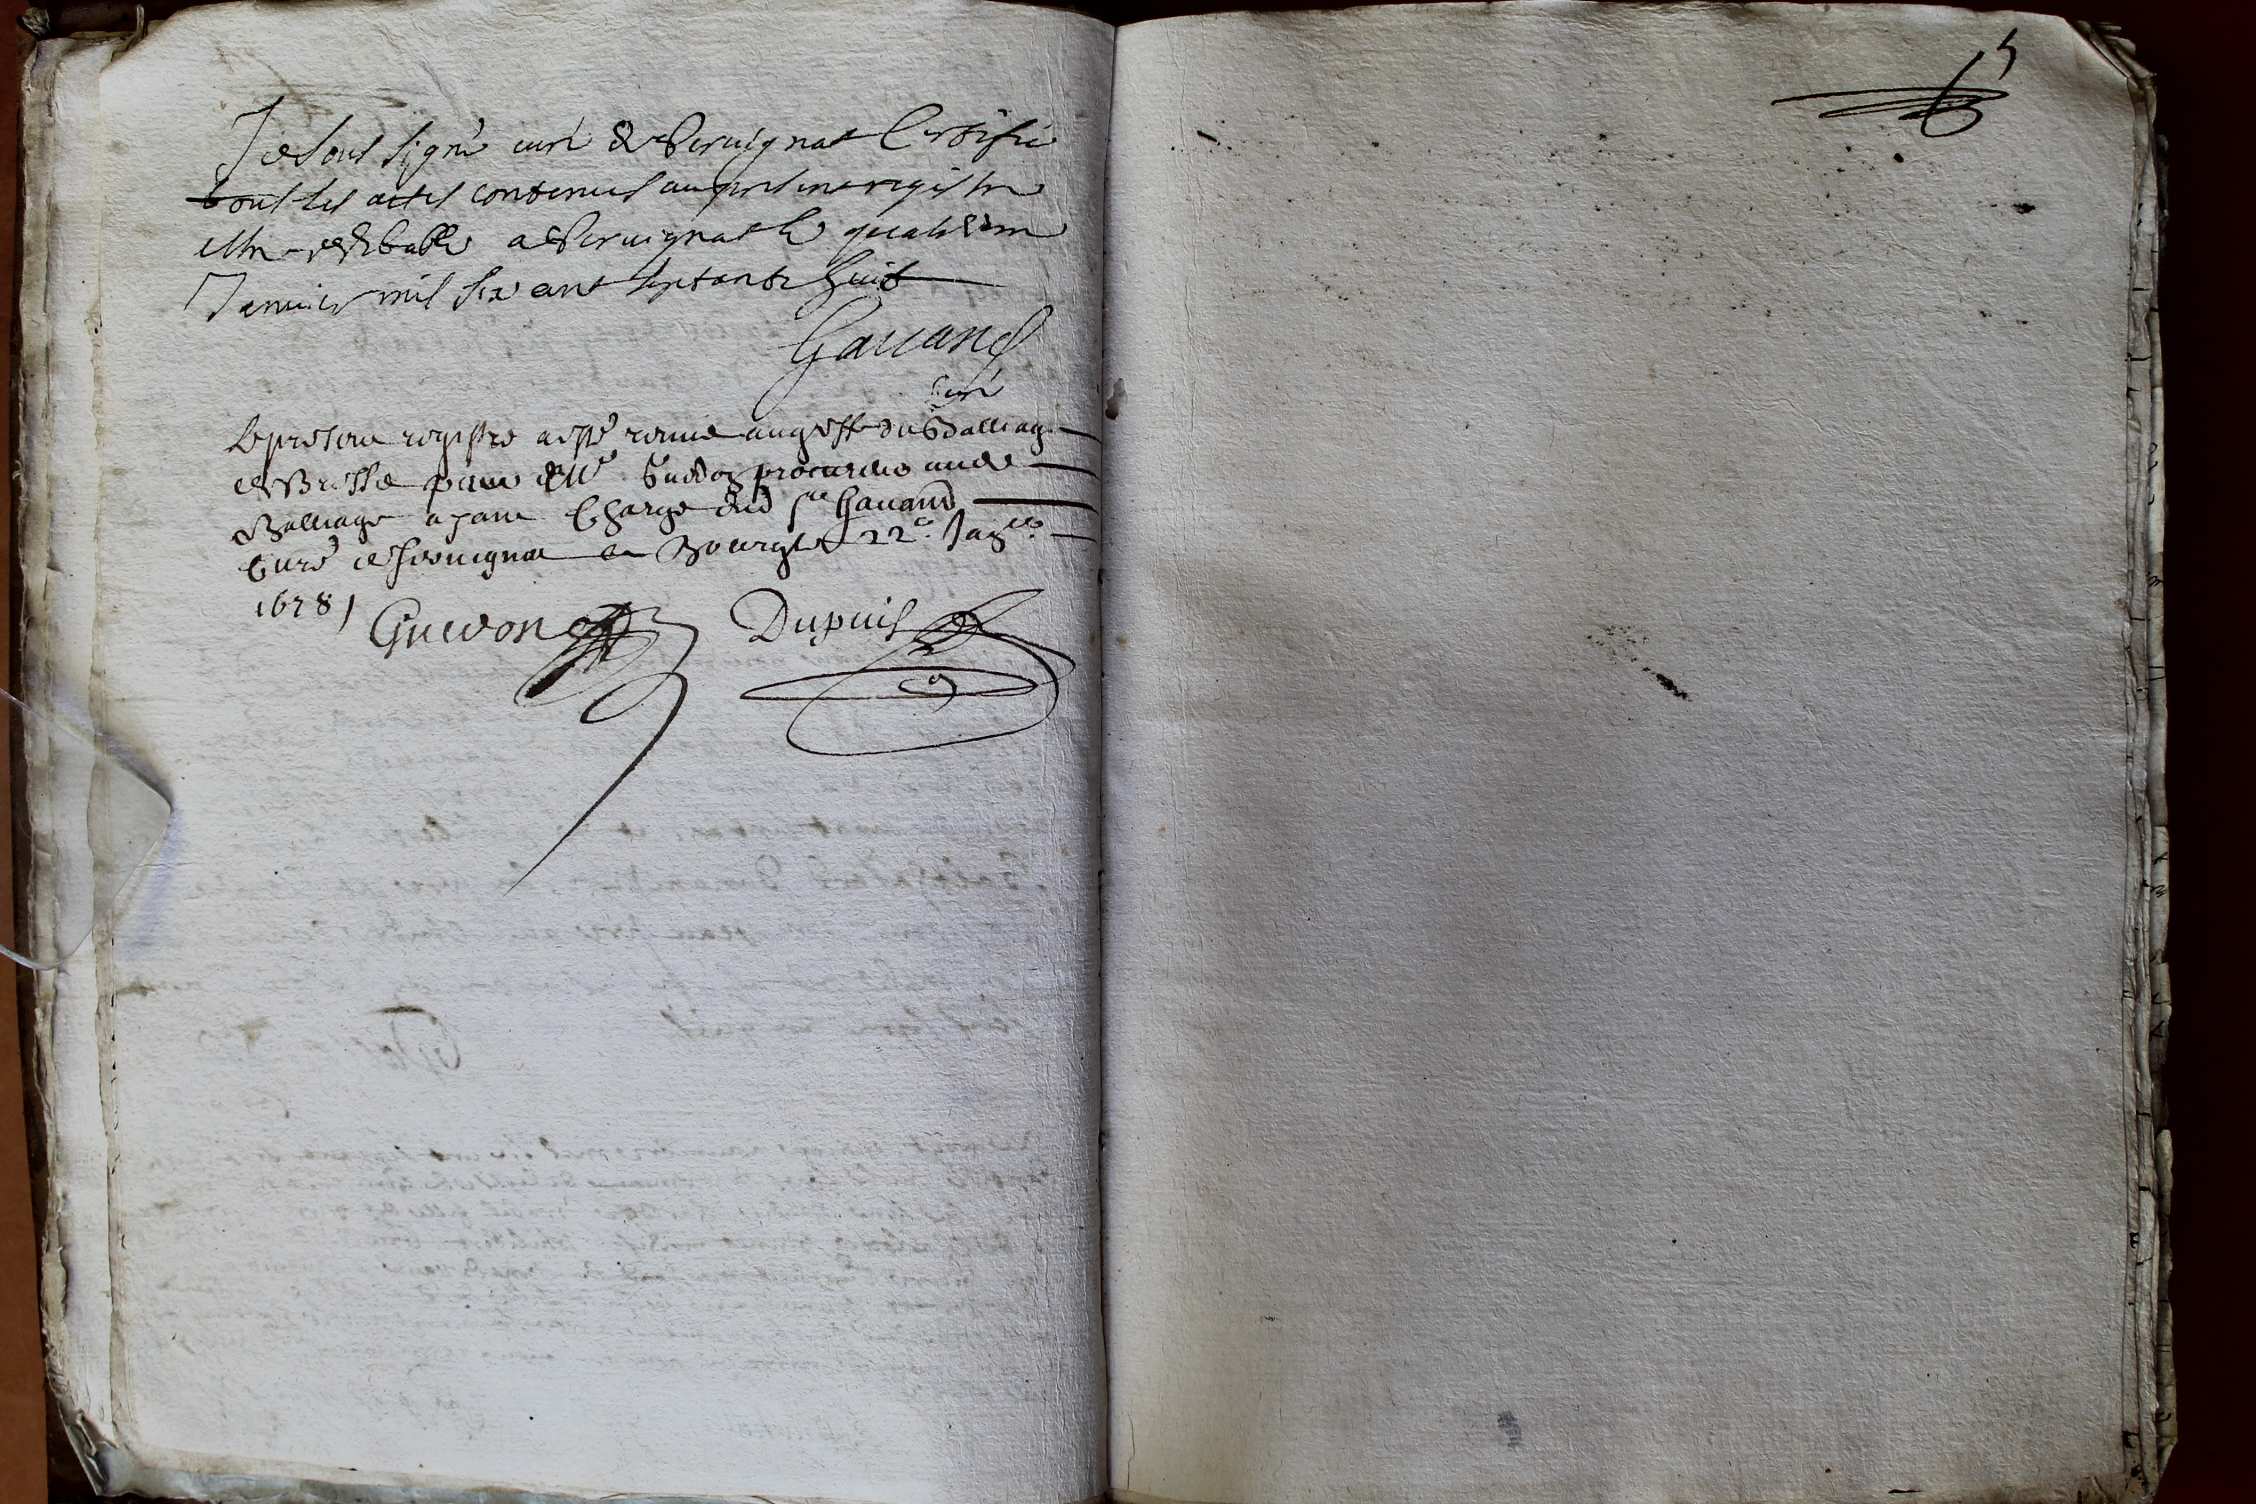 Je sous signé curé de Servignat Certifie
tous les actes contenus au present registre
estre veritable a Servignat le quatrieme
Janvier mil six cent septante huit
Gavand
Curé
Le present registre a esté remis au greffe du Balliage
de Bresse par Me Guedon procureur audt
Balliage ayant Charge dud sr Gavand
Curé de Servignat a Bourg le 22e Janer
1678 /
Guedon Dupuis
5